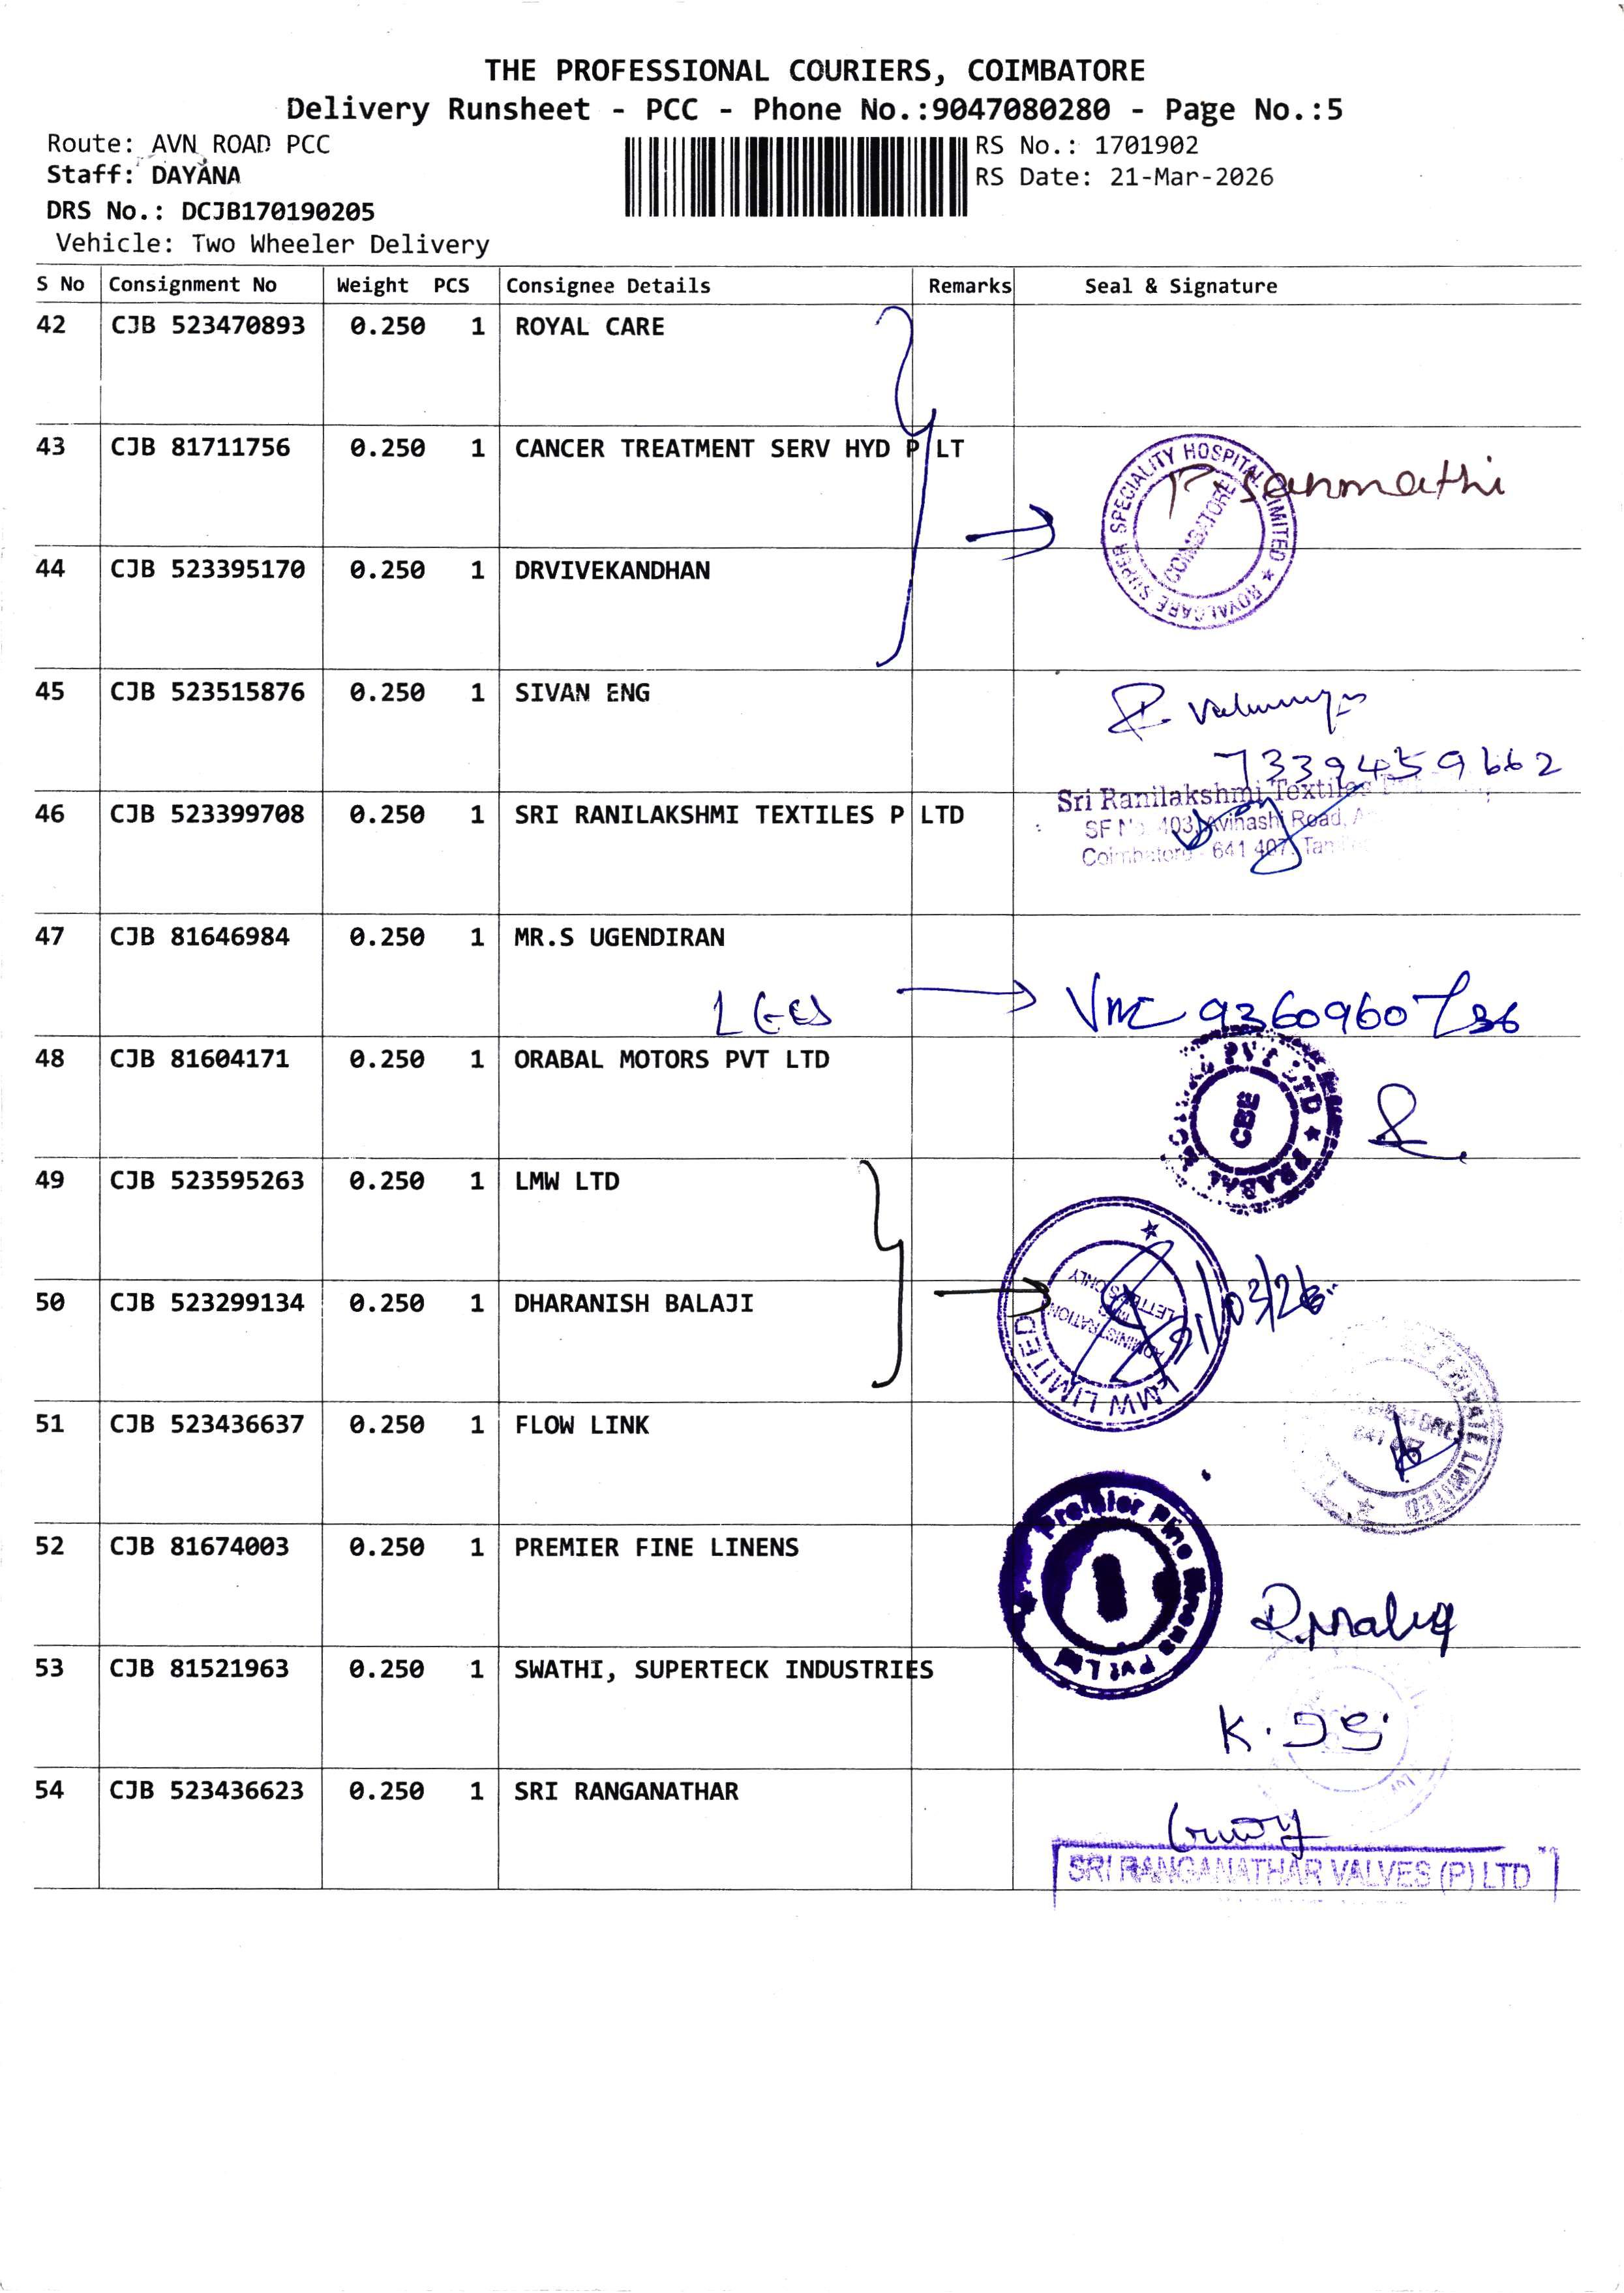 THE PROFESSIONAL COURIERS, COIMBATORE
Delivery Runsheet - PCC - Phone No.:9047080280 - Page No.:5
Route: AVN ROAD PCC
Staff: DAYANA
DRS No.: DCJB170190205
Vehicle: Two Wheeler Delivery
RS No.: 1701902
RS Date: 21-Mar-2026
S No Consignment No Weight PCS Consignee Details Remarks Seal & Signature
42 CJB 523470893 0.250 1 ROYAL CARE
43 CJB 81711756 0.250 1 CANCER TREATMENT SERV HYD P LT
SUPER SPECIALITY HOSPITAL LIMITED ★ ROYALCARE
COIMBATORE
P. Sanmathi
44 CJB 523395170 0.250 1 DRVIVEKANDHAN
45 CJB 523515876 0.250 1 SIVAN ENG
7339459662
46 CJB 523399708 0.250 1 SRI RANILAKSHMI TEXTILES P LTD
Sri Ranilakshmi Textiles
SF No. 403, Avinashi Road,
Coimbatore - 641 407. Tam
47 CJB 81646984 0.250 1 MR.S UGENDIRAN
9360960736
48 CJB 81604171 0.250 1 ORABAL MOTORS PVT LTD
PVT LTD ★ PRABAL
CBE
49 CJB 523595263 0.250 1 LMW LTD
50 CJB 523299134 0.250 1 DHARANISH BALAJI
LMW LIMITED
ADMINISTRATION
LETTERS ONLY
21/03/26
51 CJB 523436637 0.250 1 FLOW LINK
PRIVATE LIMITED
52 CJB 81674003 0.250 1 PREMIER FINE LINENS
Premier Fine Linens Pvt Ltd
53 CJB 81521963 0.250 1 SWATHI, SUPERTECK INDUSTRIES
54 CJB 523436623 0.250 1 SRI RANGANATHAR
SRI RANGANATHAR VALVES (P) LTD